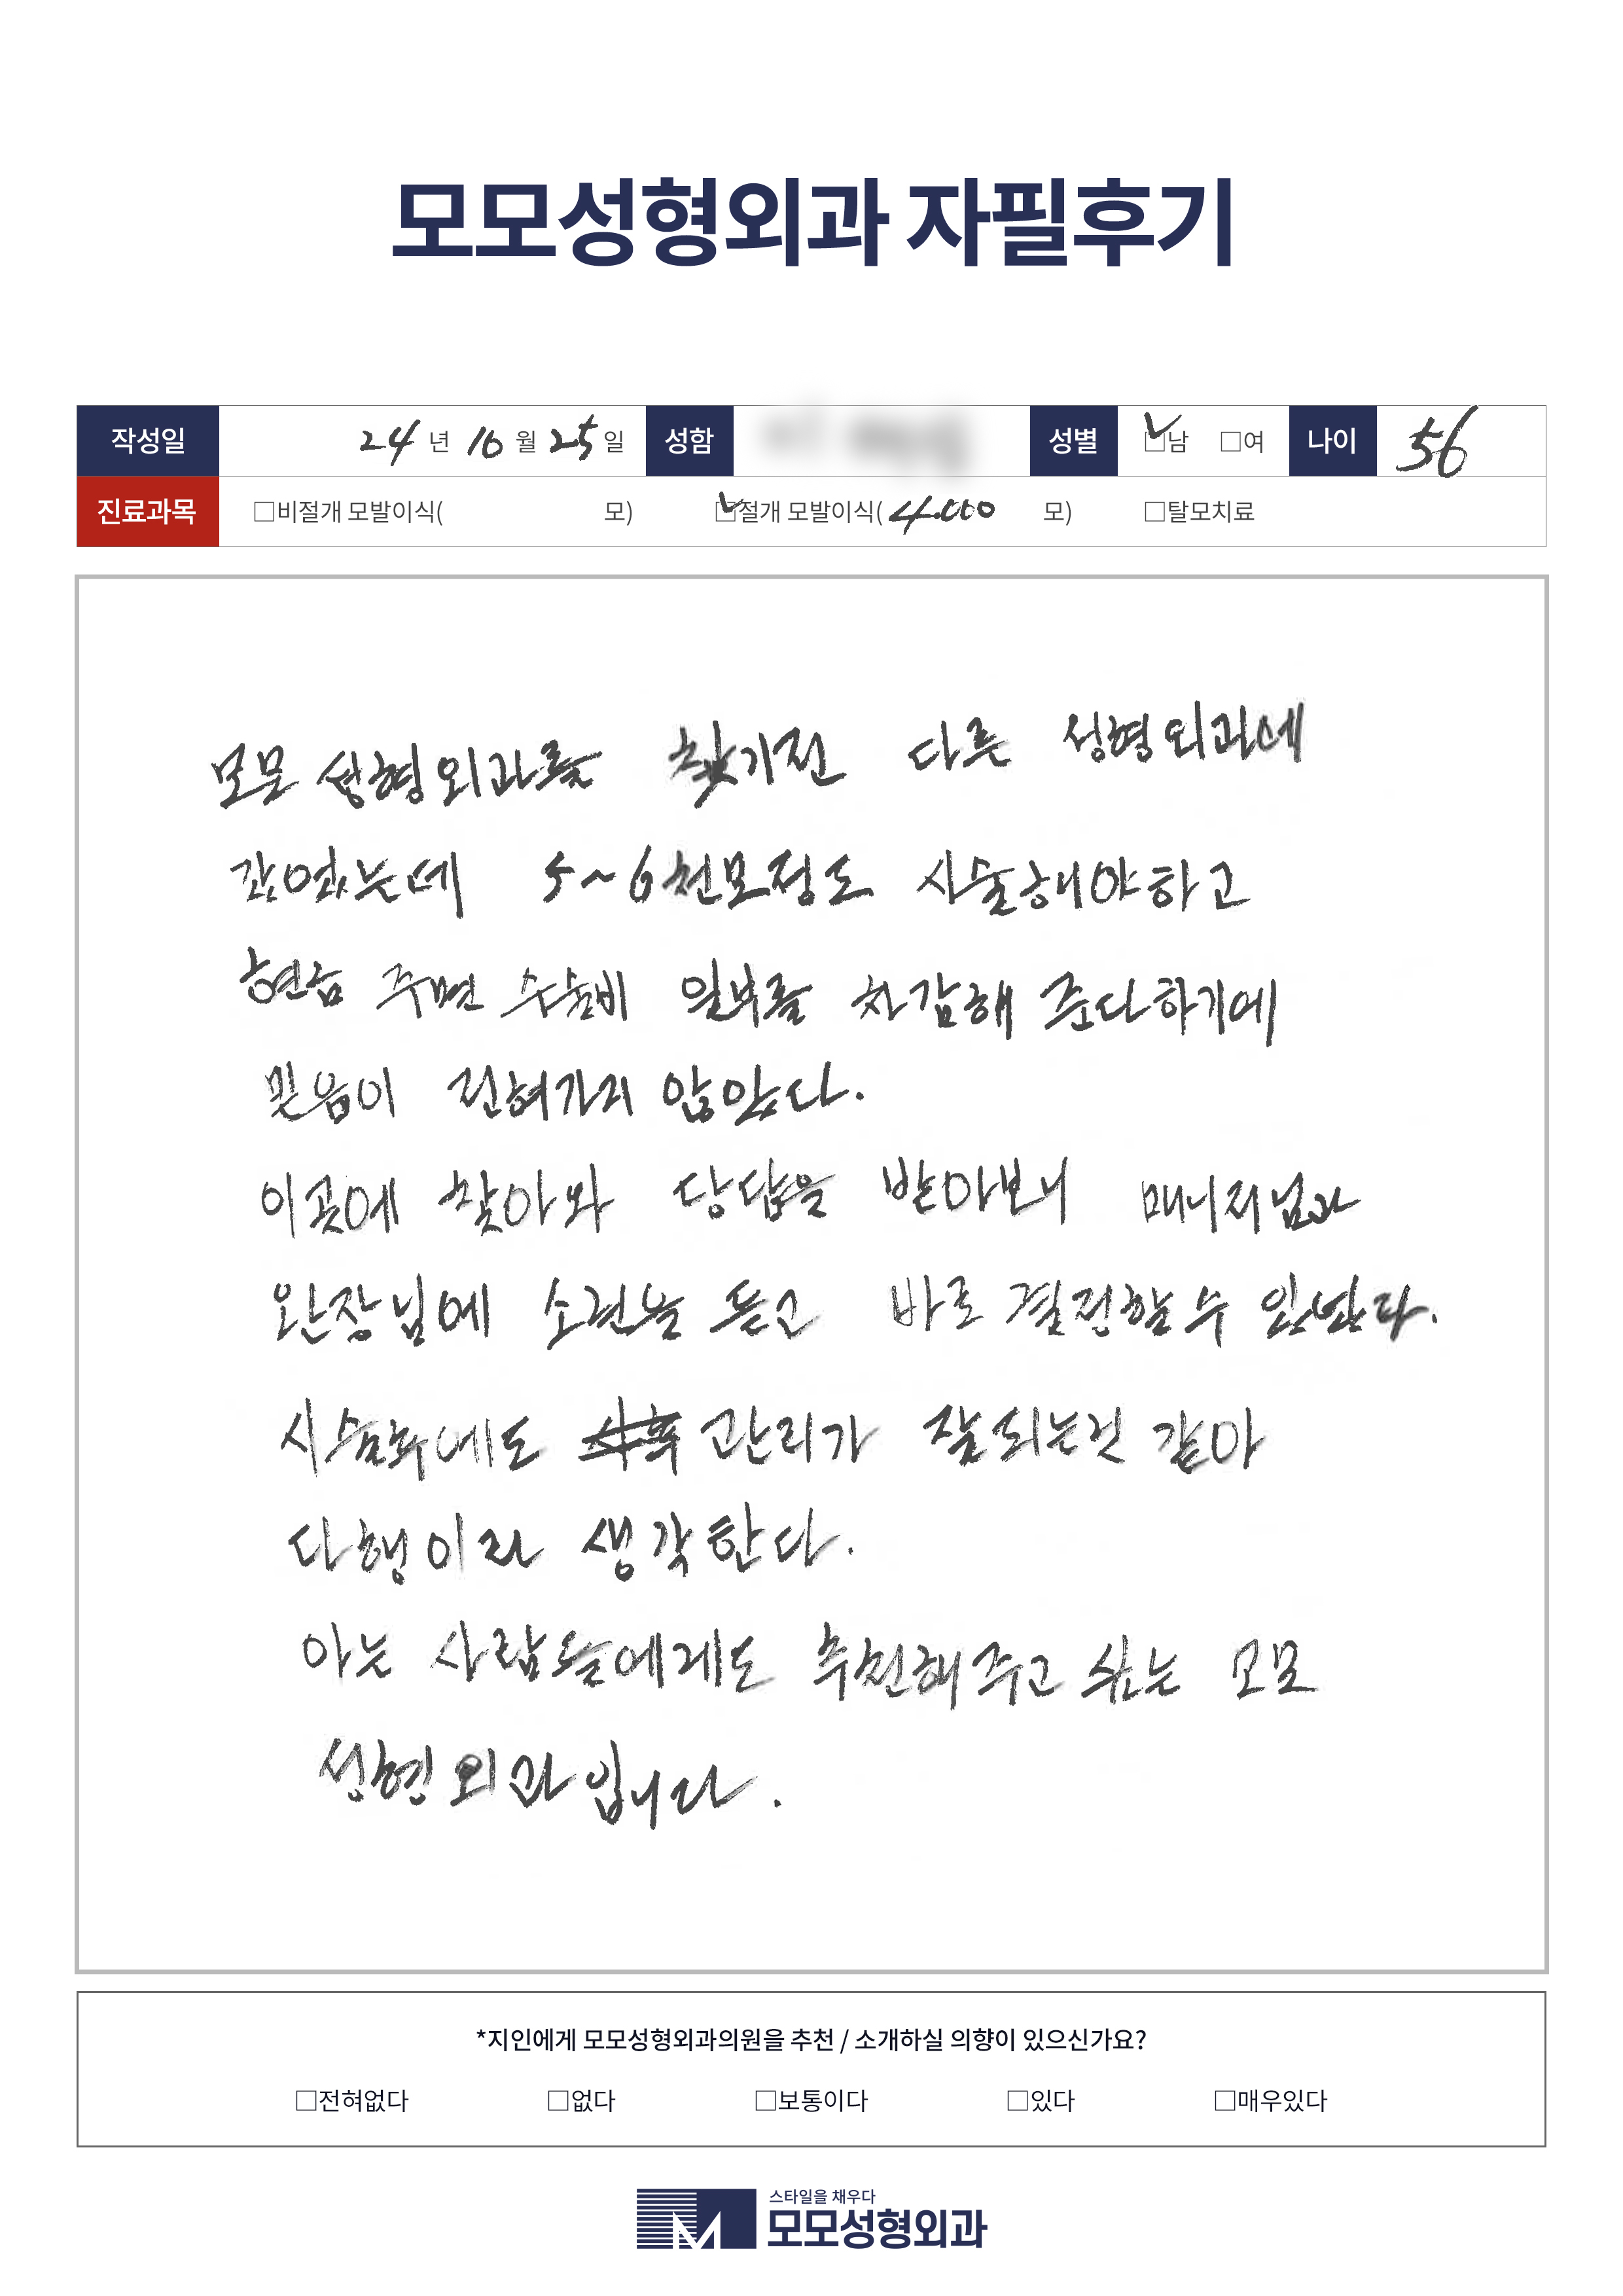 모모성형외과 자필후기
작성일 24 년 10 월 25 일 성함 성별 ☑남 □여 나이 56
진료과목 □비절개 모발이식( 모) ☑절개 모발이식( 4.000 모) □탈모치료
모모 성형외과를 찾기전 다른 성형외과에
갔었는데 5~6천모정도 시술해야하고
현금 주면 수술비 일부를 차감해 준다하기에
믿음이 전혀가지 않았다.
이곳에 찾아와 상담을 받아보니 매니저님과
원장님에 소견을 듣고 바로 결정할수 있었다.
시술후에도 관리가 잘되는것 같아
다행이라 생각한다.
아는 사람들에게도 추천해주고 싶은 모모
성형외과입니다.
*지인에게 모모성형외과의원을 추천 / 소개하실 의향이 있으신가요?
□전혀없다 □없다 □보통이다 □있다 □매우있다
스타일을 채우다
모모성형외과